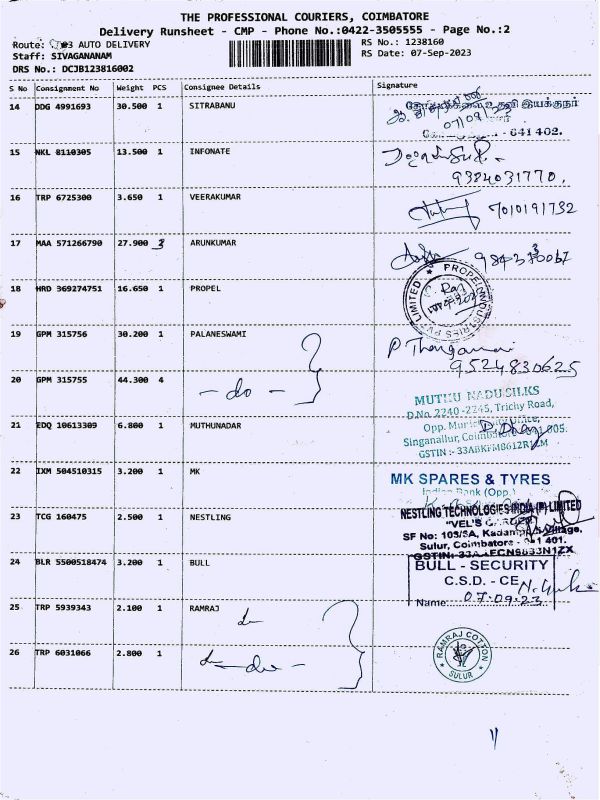 THE PROFESSIONAL COURIERS, COIMBATORE
Delivery Runsheet - CMP - Phone No.:0422-3505555 - Page No.:2
Route: AUTO DELIVERY
RS No.: 1238160
Staff: SIVAGANANAM
RS Date: 07-Sep-2023
DRS No.: DCJB123816002
S No Consignment No Weight PCS Consignee Details Signature
14 DDG 4991693 30.500 1 SITRABANU
07/09/23
641 402.
15 NKL 8110305 13.500 1 INFONATE
9384031770.
16 TRP 6725300 3.650 1 VEERAKUMAR 7010191732
17 MAA 571266790 27.900 3 ARUNKUMAR
18 HRD 369274751 16.650 1 PROPEL
19 GPM 315756 30.200 1 PALANESWAMI
9524830625
20 GPM 315755 44.300 4 - do -
MUTHU NADU SILKS
D.No. 2240 -2245, Trichy Road,
21 EDQ 10613309 6.800 1 MUTHUNADAR
Opp. Municipal Office,
Singanallur, Coimbatore
GSTIN :- 33ABKFM8612R1ZM
22 IXM 504510315 3.200 1 MK
MK SPARES & TYRES
Indian Bank (Opp.)
23 TCG 160475 2.500 1 NESTLING
NESTLING TECHNOLOGIES INDIA (P) LIMITED
SF No: 103/3A, Kadampadi Village,
Sulur, Coimbatore - 641 401.
24 BLR 5500518474 3.200 1 BULL
BULL - SECURITY
C.S.D. - CE
Name: 07.09.23
25 TRP 5939343 2.100 1 RAMRAJ
26 TRP 6031066 2.800 1
RAMRAJ COTTON
SULUR